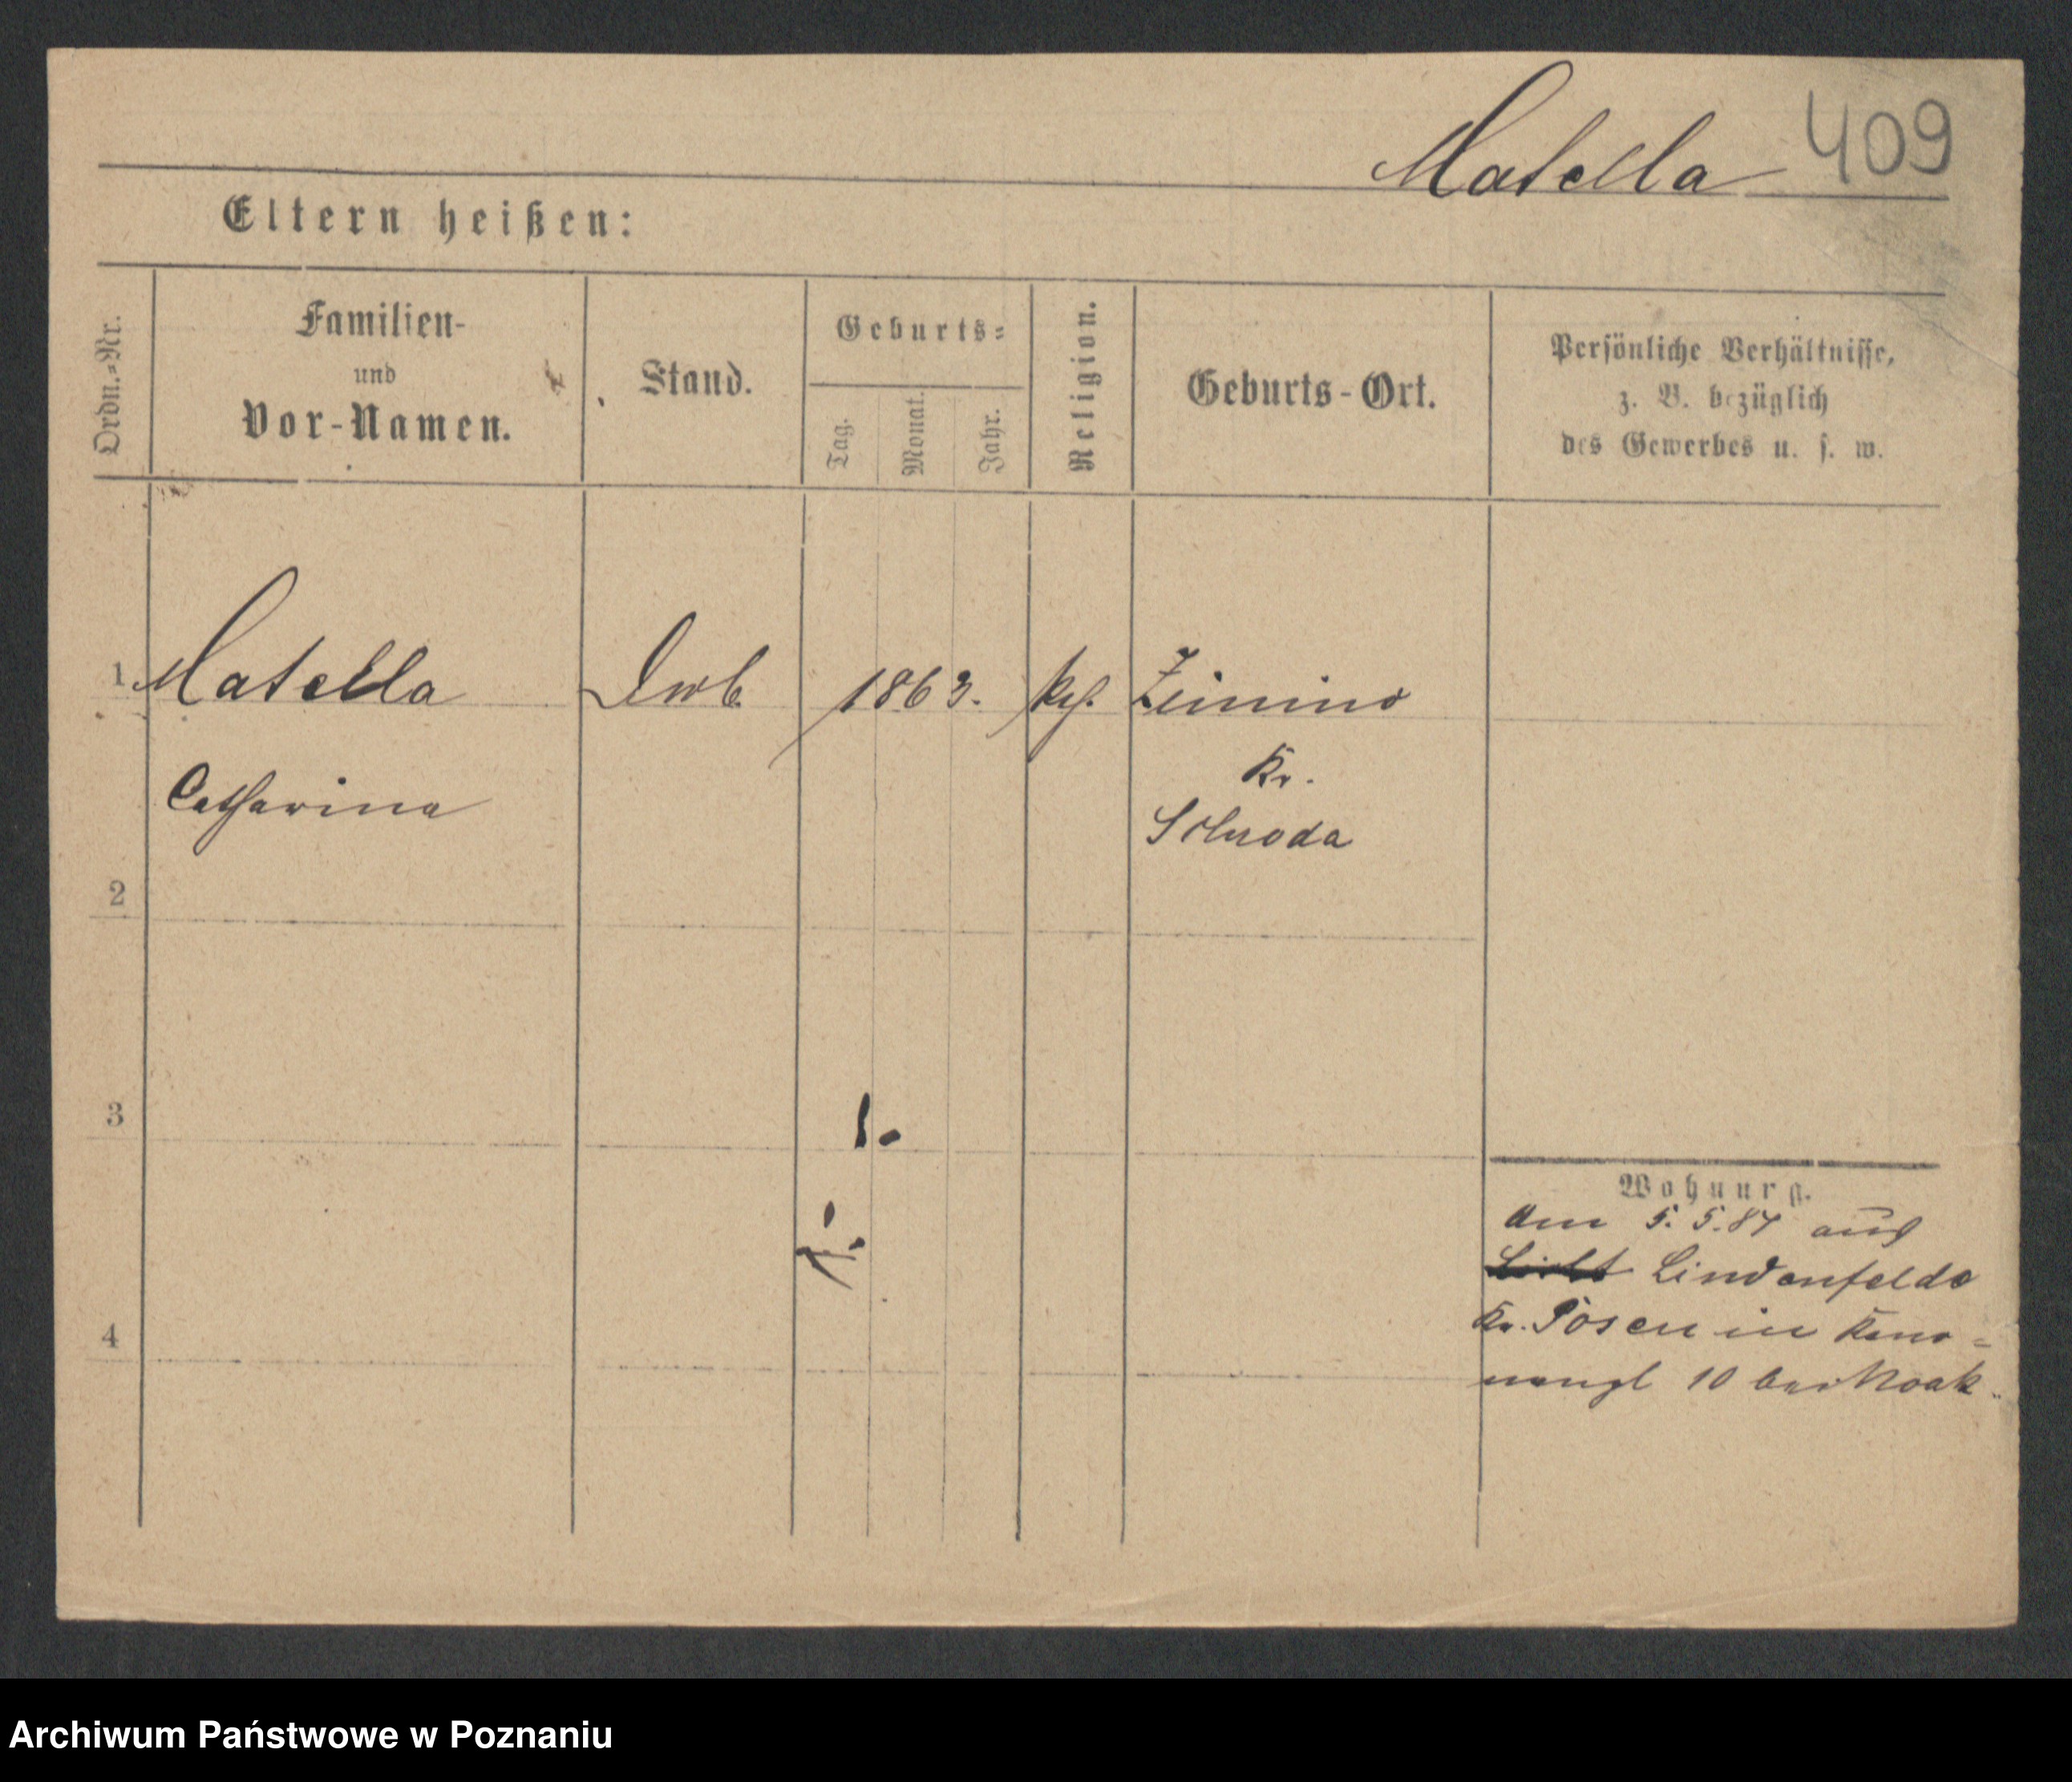 Matella 409
Eltern heißen:
Ordn.-Nr.
Familien-
und
Vor-Namen.
Stand.
Geburts-
Tag.
Monat.
Jahr.
Religion.
Geburts-Ort.
Persönliche Verhältnisse,
z. B. bezüglich
des Gewerbes u. s. w.
1 Matella 1863. Zeimino
Catharina
Kr.
Schroda
2
3
4
Wohnung.
am 5. 5. 87 aus
Lindenfelde
Kr. Posen in
10 bei Noak
Archiwum Państwowe w Poznaniu